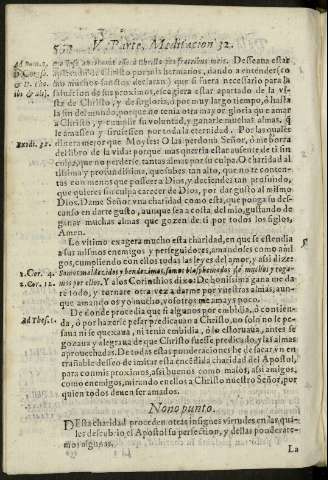 V. Parte, Meditacion 32.
ego ipse anathema esse à Christo pro fratribus meis. Desseaua estar
apartado de Christo por mis hermanos, dando a entender (co
mo muchos santos declaran) que si fuera necessario para la
saluacion de sus proximos, escogiera estar apartado de la vi-
sta de Christo, y de su gloria, ò por muy largo tiempo, ò hasta
la fin del mundo, porque no tenia otra mayor gloria que amar
a Christo, y cumplir su voluntad, y ganarle muchas almas, q̃
le amassen y siruiessen por toda la eternidad. Por las quales
Exodi. 32. dixera mejor que Moyses: O las perdona Señor, ò me borra
del libro de la vida: porque mas querria estar ausente de ti sin
culpa, que no perderte tantas almas por su culpa. O charidad al
tissima y profundissima, que subes tan alto, que no te conten-
tas con menos que posseer a Dios, y deciendes tan profundo,
que quieres sin culpa carecer de Dios, por dar gusto al mismo
Dios. Dame Señor vna charidad como esta, que ponga su des-
canso en darte gusto, aunque sea a costa del mio, gustando de
ganar muchas almas que gozen de ti por todos los siglos,
Amen.
Lo vltimo exagera mucho esta charidad, en que se estendia
a sus mismos enemigos y perseguidores, amandoles como ami
gos, cumpliendo con ellos todas las leyes del amor, y assi dize:
1. Cor. 4. Somos maldezidos y bendezimos, somos blasphemados de muchos y roga-
2. Cor. 12. mos por ellos. Y a los Corinthios dixo: De bonissima gana me da
rè todo, y tornarè otra vez a darme por vuestras almas, aun-
que amando os yo mucho, vosotros me amays poco.
De donde procedia que si algunos por embidia, ò contien-
Ad Thes. 1. da, ò por hazerle pesar predicauan a Christo, no solo no le pe-
saua ni se quexaua, ni tenia embidia, ò lo estoruaua, antes se
gozaua y alegraua de que Christo fuesse predicado, y las almas
aprouechadas. De todas estas ponderaciones he de sacar vn en
trañable desseo de imitar esta encendida charidad del Apostol,
para con mis proximos, assi buenos como malos, assi amigos,
como enemigos, mirando en ellos a Christo nuestro Señor, por
quien todos deuen ser amados.
Nono punto.
DEsta charidad proceden otras insignes virtudes en las qua-
les descubrio el Apostol su perfection, y dellas ponderare-
mos algunas.
La